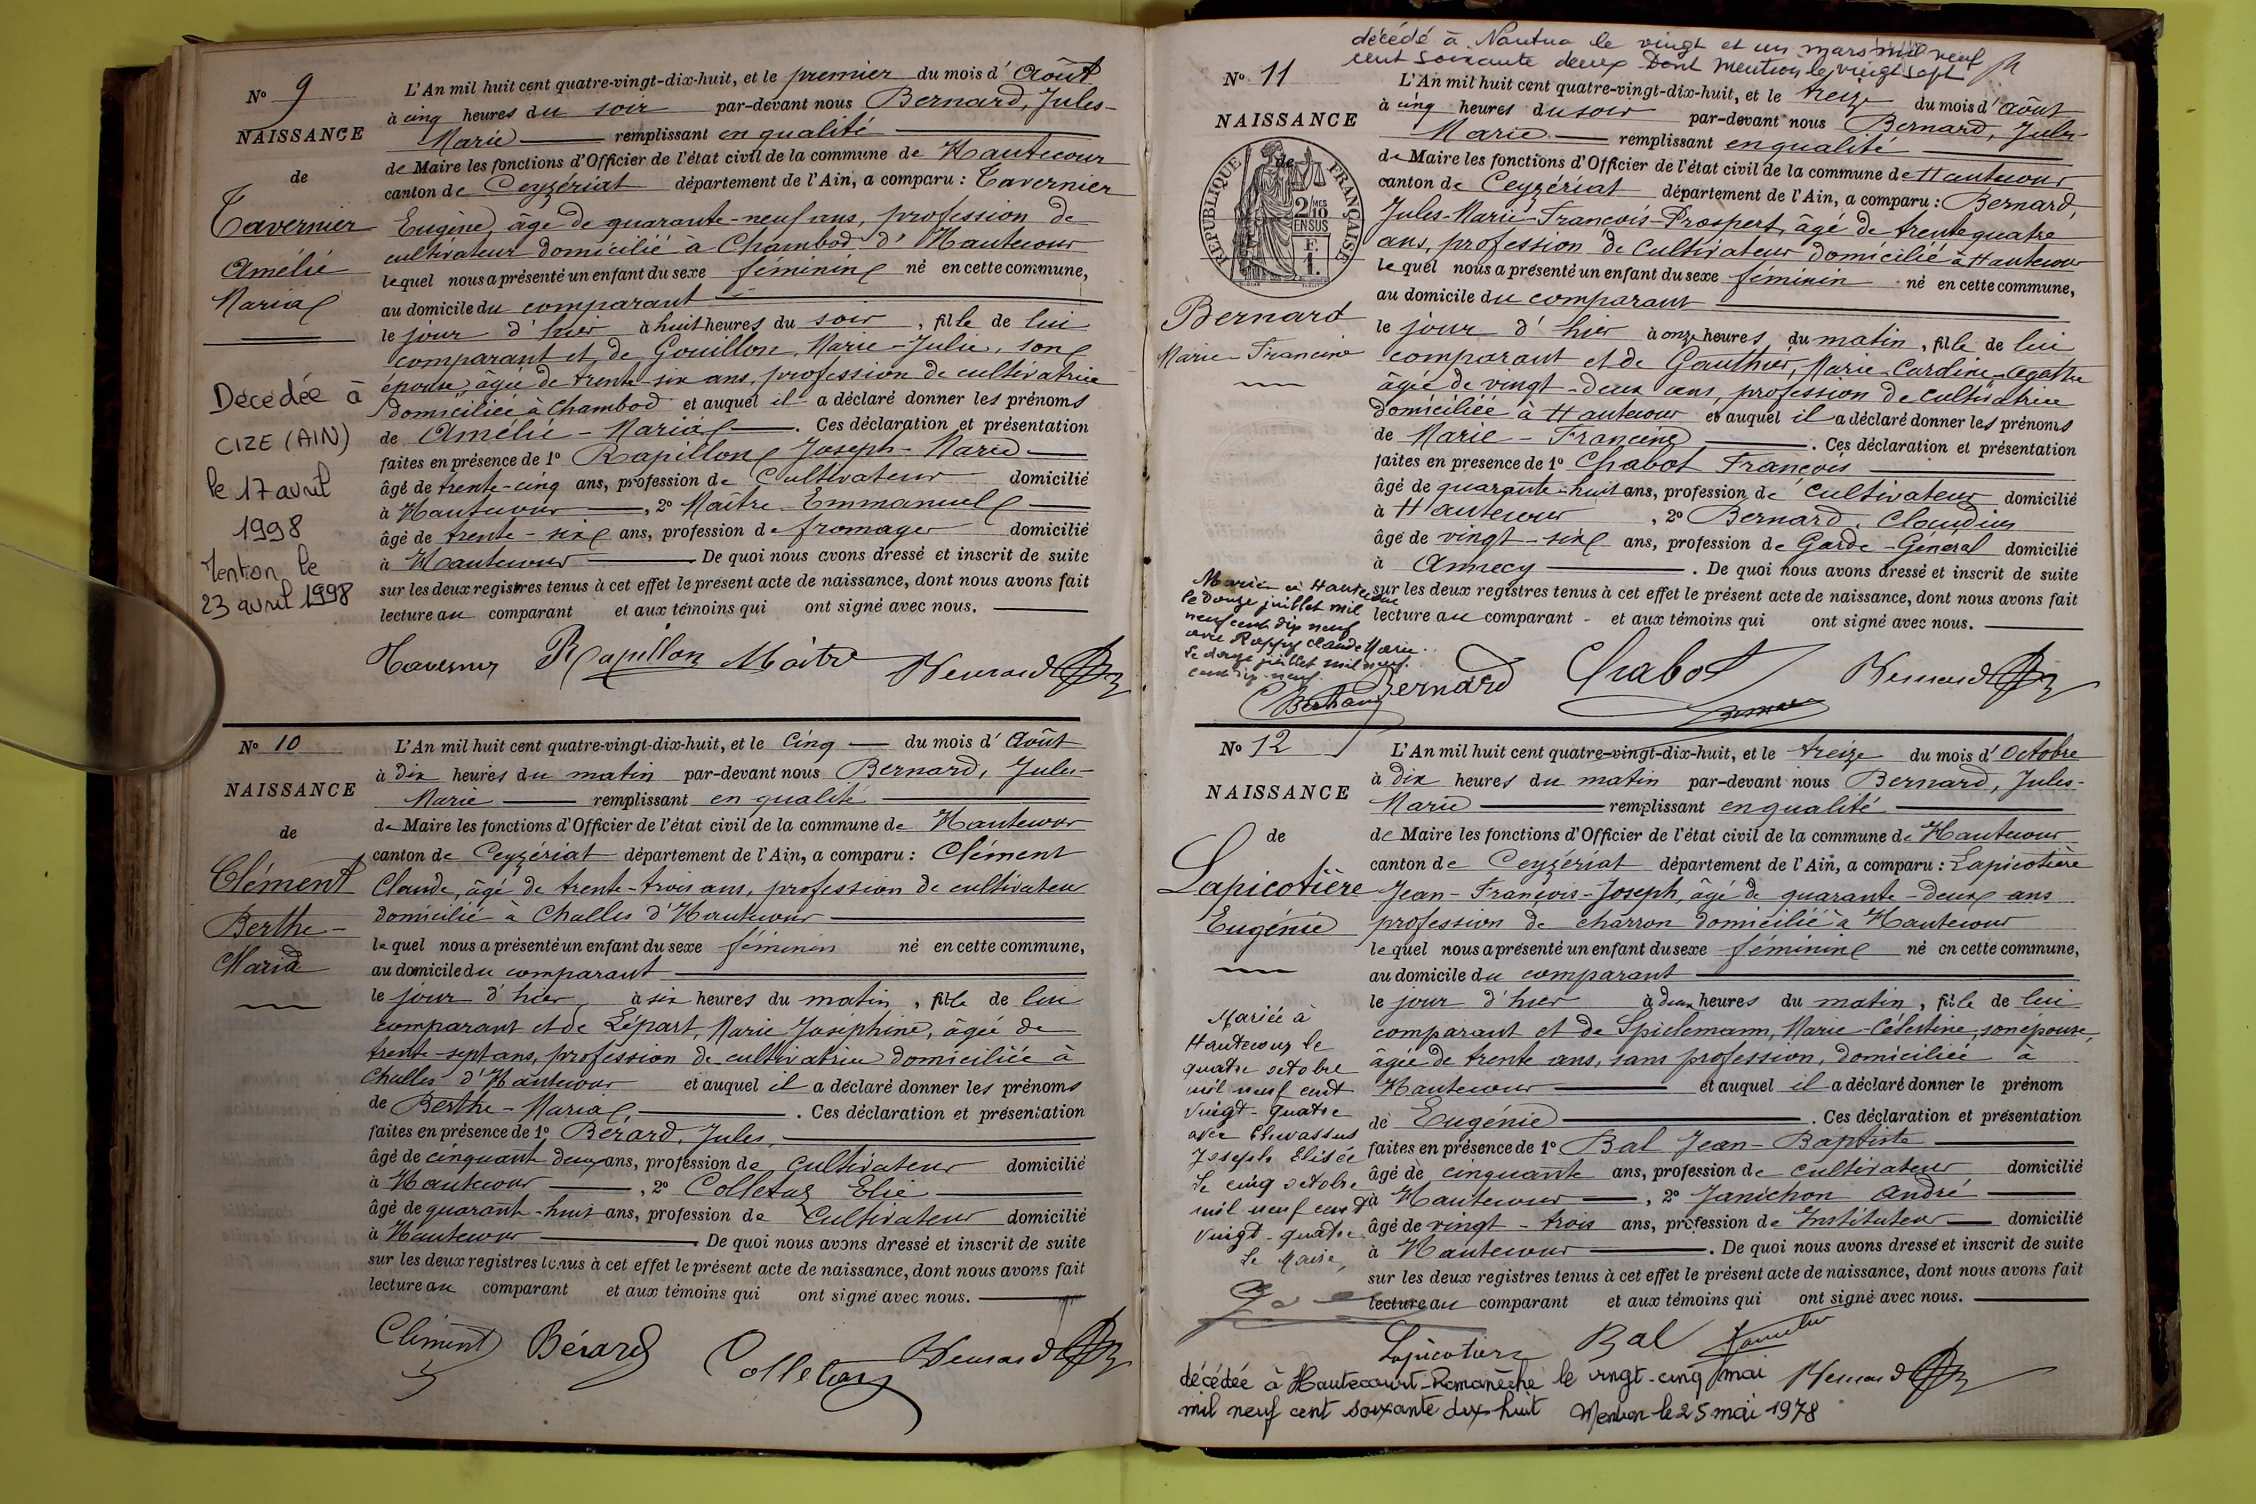 N° 9
NAISSANCE
de
Tavernier
Amélie
Maria
Décédée à
CIZE (AIN)
le 17 avril
1998
Mention le
23 avril 1998
L'An mil huit cent quatre-vingt-dix-huit, et le premier du mois d'Août
à cinq heures du soir par-devant nous Bernard, Jules-
Marie remplissant en qualité
de Maire les fonctions d'Officier de l'état civil de la commune de Hautecour
canton de Ceyzériat département de l'Ain, a comparu : Tavernier
Eugène, âgé de quarante-neuf ans, profession de
cultivateur domicilié à Chambod d'Hautecour
lequel nous a présenté un enfant du sexe féminin né en cette commune,
au domicile du comparant
le jour d'hier à huit heures du soir, fille de lui
comparant et de Gouillon, Marie-Julie, son
épouse, âgée de trente-six ans, profession de cultivatrice
domiciliée à Chambod et auquel il a déclaré donner les prénoms
de Amélie-Maria. Ces déclaration et présentation
faites en présence de 1° Rapillon Joseph-Marie
âgé de trente-cinq ans, profession de Cultivateur domicilié
à Hautecour, 2° Maître Emmanuel
âgé de trente-six ans, profession de fromager domicilié
à Hautecour. De quoi nous avons dressé et inscrit de suite
sur les deux registres tenus à cet effet le présent acte de naissance, dont nous avons fait
lecture au comparant et aux témoins qui ont signé avec nous.
Tavernier Rapillon Maître Bernard
N° 10
NAISSANCE
de
Clément
Berthe-
Maria
L'An mil huit cent quatre-vingt-dix-huit, et le Cinq du mois d'Août
à dix heures du matin par-devant nous Bernard, Jules-
Marie remplissant en qualité
de Maire les fonctions d'Officier de l'état civil de la commune de Hautecour
canton de Ceyzériat département de l'Ain, a comparu : Clément
Claude, âgé de trente-trois ans, profession de cultivateur
domicilié à Challes d'Hautecour
lequel nous a présenté un enfant du sexe féminin né en cette commune,
au domicile du comparant
le jour d'hier, à six heures du matin, fille de lui
comparant et de Lépart, Marie Joséphine, âgée de
trente-sept ans, profession de cultivatrice domiciliée à
Challes d'Hautecour et auquel il a déclaré donner les prénoms
de Berthe-Maria. Ces déclaration et présentation
faites en présence de 1° Bérard, Jules,
âgé de cinquante deux ans, profession de Cultivateur domicilié
à Hautecour, 2° Colletaz Elie
âgé de quarante-huit ans, profession de Cultivateur domicilié
à Hautecour. De quoi nous avons dressé et inscrit de suite
sur les deux registres tenus à cet effet le présent acte de naissance, dont nous avons fait
lecture au comparant et aux témoins qui ont signé avec nous.
Clément Bérard Colletaz Bernard
décédé à Nantua le vingt et un mars mil neuf
cent soixante deux. Dont mention le vingt sept
N° 11
NAISSANCE
de
RÉPUBLIQUE FRANÇAISE
2/10 MES
EN SUS
F.
1.
Bernard
Marie-Francine
Mariée à Hautecour
le douze juillet mil
neuf cent dix neuf
avec Rappy Claude Marie.
Le douze juillet mil neuf
cent dix-neuf
L'An mil huit cent quatre-vingt-dix-huit, et le treize du mois d'Août
à cinq heures du soir par-devant nous Bernard, Jules-
Marie remplissant en qualité
de Maire les fonctions d'Officier de l'état civil de la commune de Hautecour
canton de Ceyzériat département de l'Ain, a comparu : Bernard,
Jules-Marie-François-Prospert, âgé de trente quatre
ans, profession de Cultivateur domicilié à Hautecour
lequel nous a présenté un enfant du sexe féminin né en cette commune,
au domicile du comparant
le jour d'hier à onze heures du matin, fille de lui
comparant et de Gauthier, Marie-Cardine-Agathe
âgée de vingt-deux ans, profession de cultivatrice
domiciliée à Hautecour et auquel il a déclaré donner les prénoms
de Marie-Francine. Ces déclaration et présentation
faites en présence de 1° Chabot François
âgé de quarante-huit ans, profession de Cultivateur domicilié
à Hautecour, 2° Bernard, Claudius
âgé de vingt-six ans, profession de Garde-Général domicilié
à Annecy. De quoi nous avons dressé et inscrit de suite
sur les deux registres tenus à cet effet le présent acte de naissance, dont nous avons fait
lecture au comparant et aux témoins qui ont signé avec nous.
Bernard Chabot Bernard
N° 12
NAISSANCE
de
Lapicotière
Eugénie
Mariée à
Hautecour le
quatre octobre
mil neuf cent
vingt-quatre
avec Chevassus
Joseph Elisée
Le cinq octobre
mil neuf cent
vingt-quatre
Le Maire,
L'An mil huit cent quatre-vingt-dix-huit, et le treize du mois d'Octobre
à dix heures du matin par-devant nous Bernard, Jules-
Marie remplissant en qualité
de Maire les fonctions d'Officier de l'état civil de la commune de Hautecour
canton de Ceyzériat département de l'Ain, a comparu : Lapicotière
Jean-François-Joseph, âgé de quarante-deux ans
profession de charron domicilié à Hautecour
lequel nous a présenté un enfant du sexe féminin né en cette commune,
au domicile du comparant
le jour d'hier à deux heures du matin, fille de lui
comparant et de Spielemann, Marie-Célestine, son épouse,
âgée de trente ans, sans profession, domiciliée à
Hautecour et auquel il a déclaré donner le prénom
de Eugénie. Ces déclaration et présentation
faites en présence de 1° Bal Jean-Baptiste
âgé de cinquante ans, profession de cultivateur domicilié
à Hautecour, 2° Janichon André
âgé de vingt-trois ans, profession de Instituteur domicilié
à Hautecour. De quoi nous avons dressé et inscrit de suite
sur les deux registres tenus à cet effet le présent acte de naissance, dont nous avons fait
lecture au comparant et aux témoins qui ont signé avec nous.
Lapicotière Bal Bernard
décédée à Hautecourt-Romanèche le vingt-cinq mai
mil neuf cent soixante dix huit Mention le 25 mai 1978